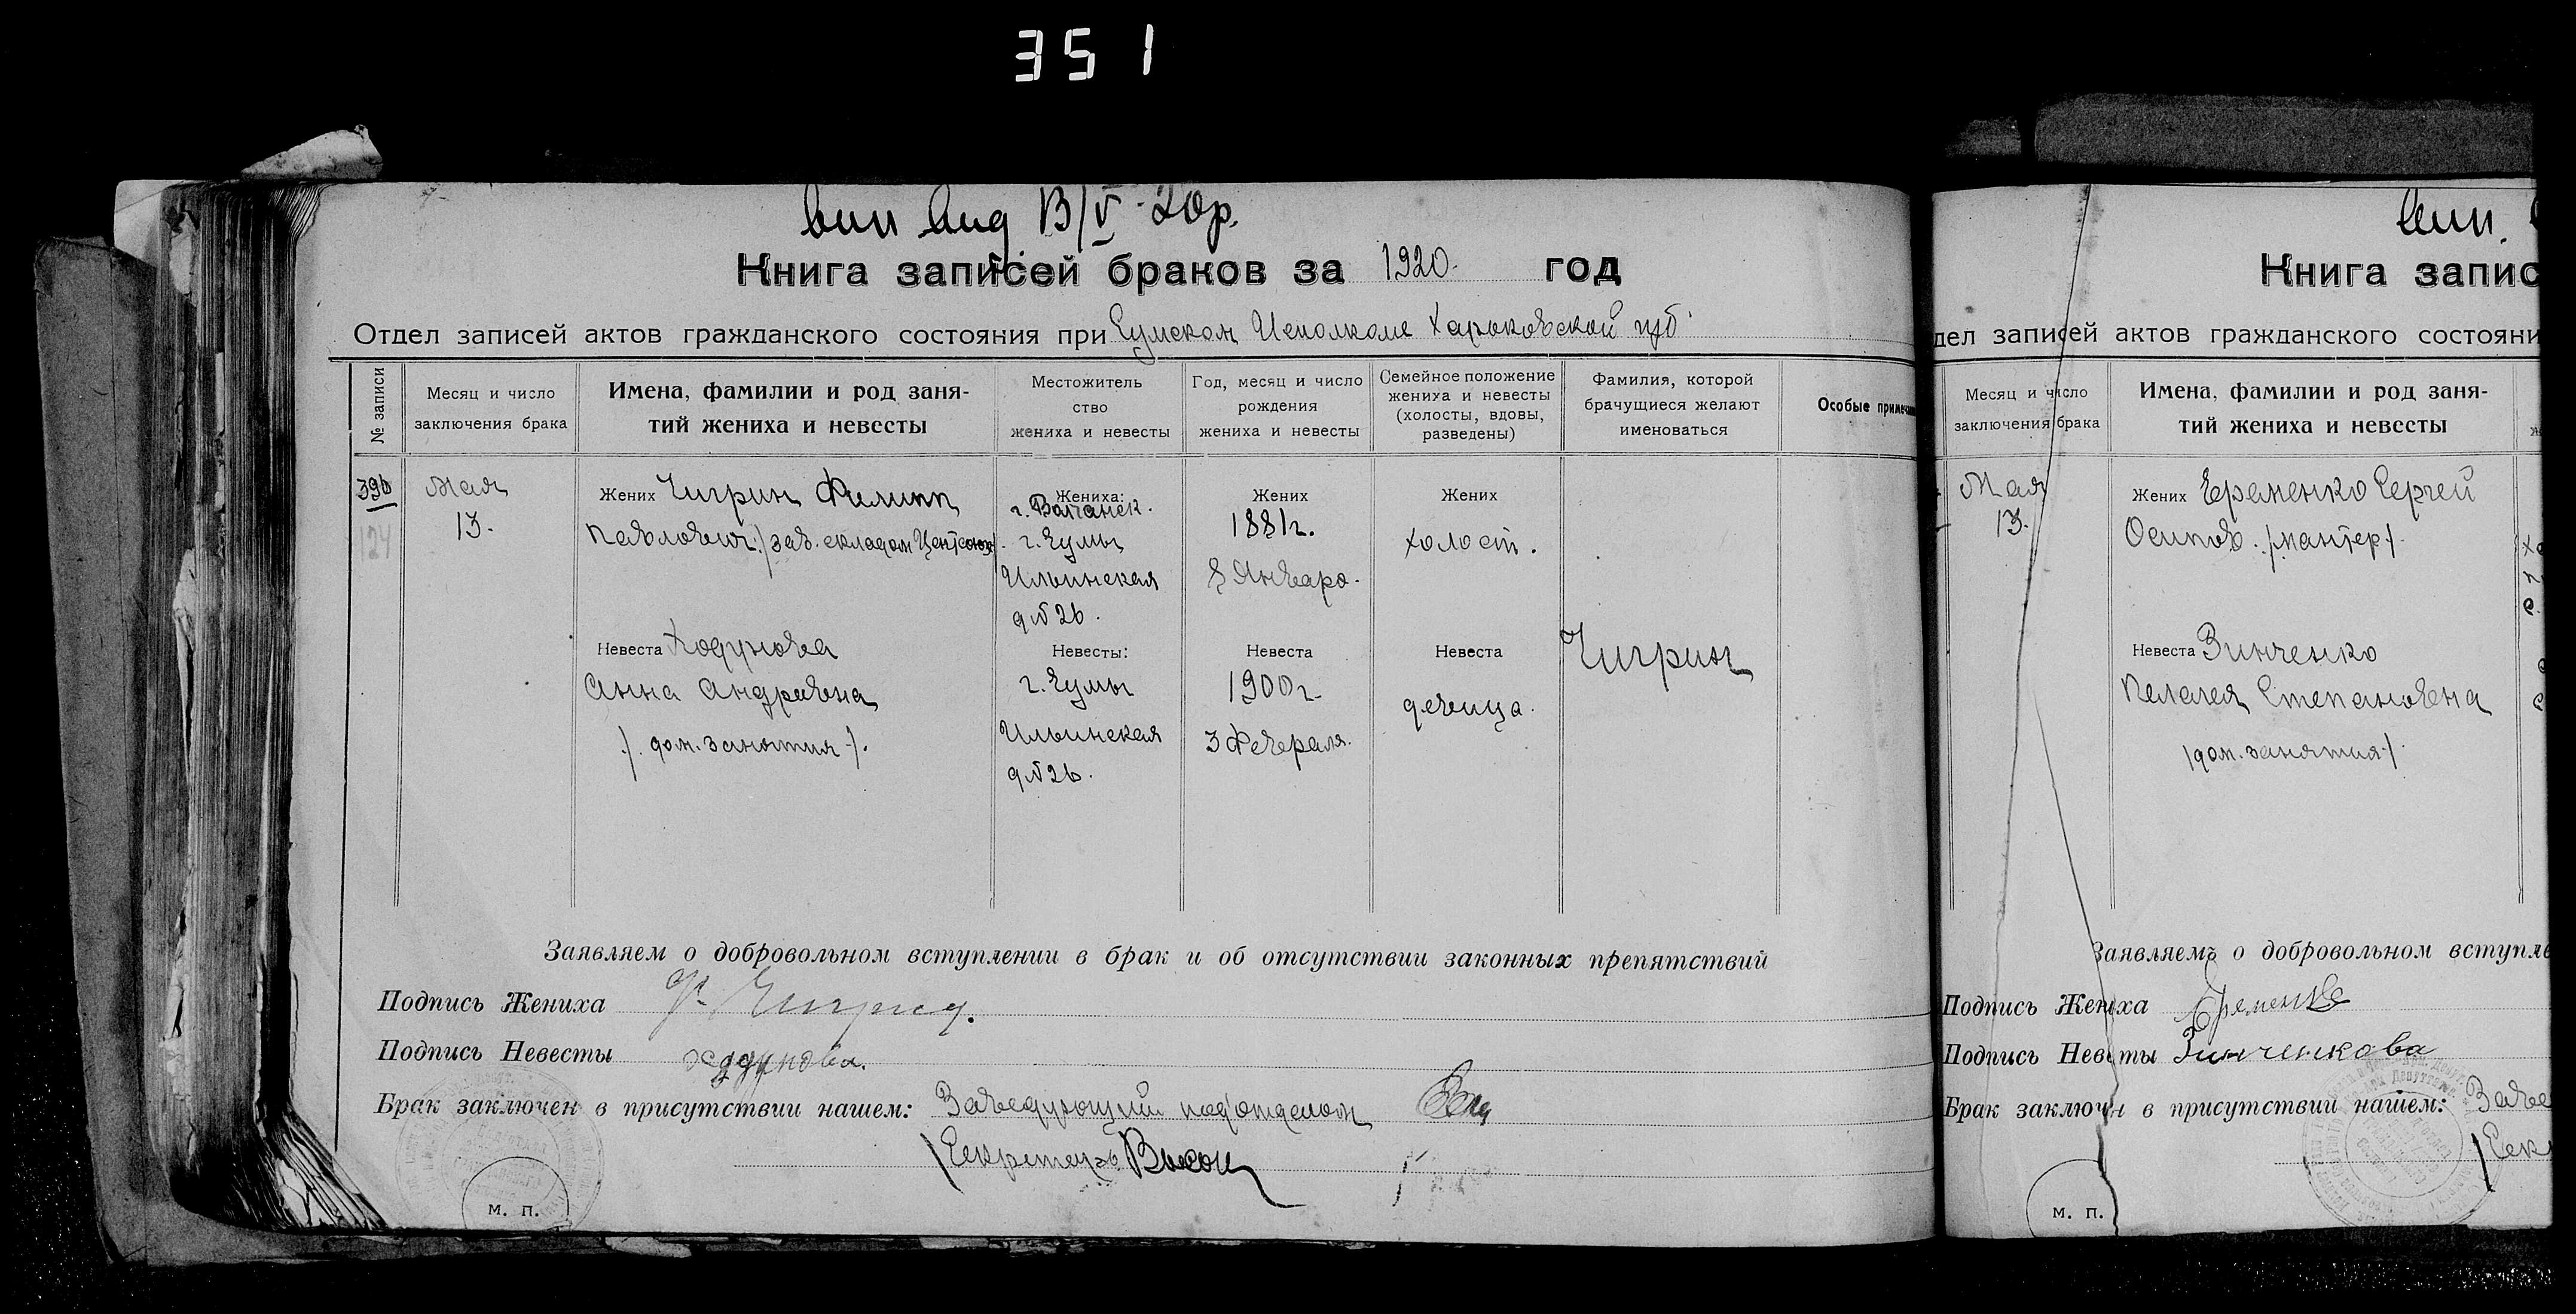 351
вип вид 13/V-20р.
Книга записей браков за 1920 год
Отдел записей актов гражданского состояния при Сумском Исполкоме Харьковской губ
№ записи
Месяц и число
заключения брака
Имена, фамилии и род заня-
тий жениха и невесты
Местожитель
ство
жениха и невесты
Год, месяц и число
рождения
жениха и невесты
Семейное положение
жениха и невесты
(холосты, вдовы,
разведены)
Фамилия, которой
брачущиеся желают
именоваться
Особые примечан
124
Мая
13.
Жених Чигрин Филипп
Павлович /зав. складом Центсоюз/.
Невеста Ходунова
Анна Андреевна
/. дом. занятия ./.
Жениха:
г. Сумы
Ильинская
д№26.
Невесты:
г. Сумы
Ильинская
д№26.
Жених
1881г.
8 Января.
Невеста
1900г.
3 Февраля.
Жених
холост.
Невеста
девица.
Чигрин
Заявляем о добровольном вступлении в брак и об отсутствии законных препятствий
Подпись Жениха Ф. Чигрин.
Подпись Невесты Ходунова.
Брак заключен в присутствии нашем: Заведующий под'отделом
/Секретарь
м. п.
вип.
Книга запис
дел записей актов гражданского состояни
Месяц и число
заключения брака
Имена, фамилии и род заня-
тий жениха и невесты
Мая
13.
Жених Еременко Сергей
Осипов. /монтер/.
Невеста Зинченко
Пелагея Степановена
/дом. занятия/.
Заявляемъ о добровольном вступле
Подпись Жениха Еременко
Подпись Невесты Зинченкова
Брак заключен в присутствии нашем: Заве
/Сек
м. п.